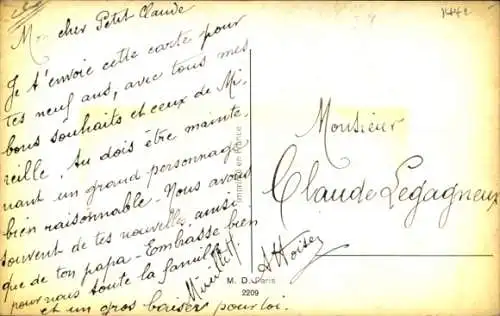 Mon cher Petit Claude
Je t'envoie cette carte pour
tes neuf ans, avec tous mes
bons souhaits et ceux de Mi-
reille. Au dois être mainte-
nant un grand personnage
bien raisonnable. Nous avons
souvent de tes nouvelles ainsi
que de ton papa. Embrasse bien
pour nous toute la famille
et un gros baiser pour toi.
Imprimé en France
M. D. Paris
2209
Monsieur
Claude Legagneux